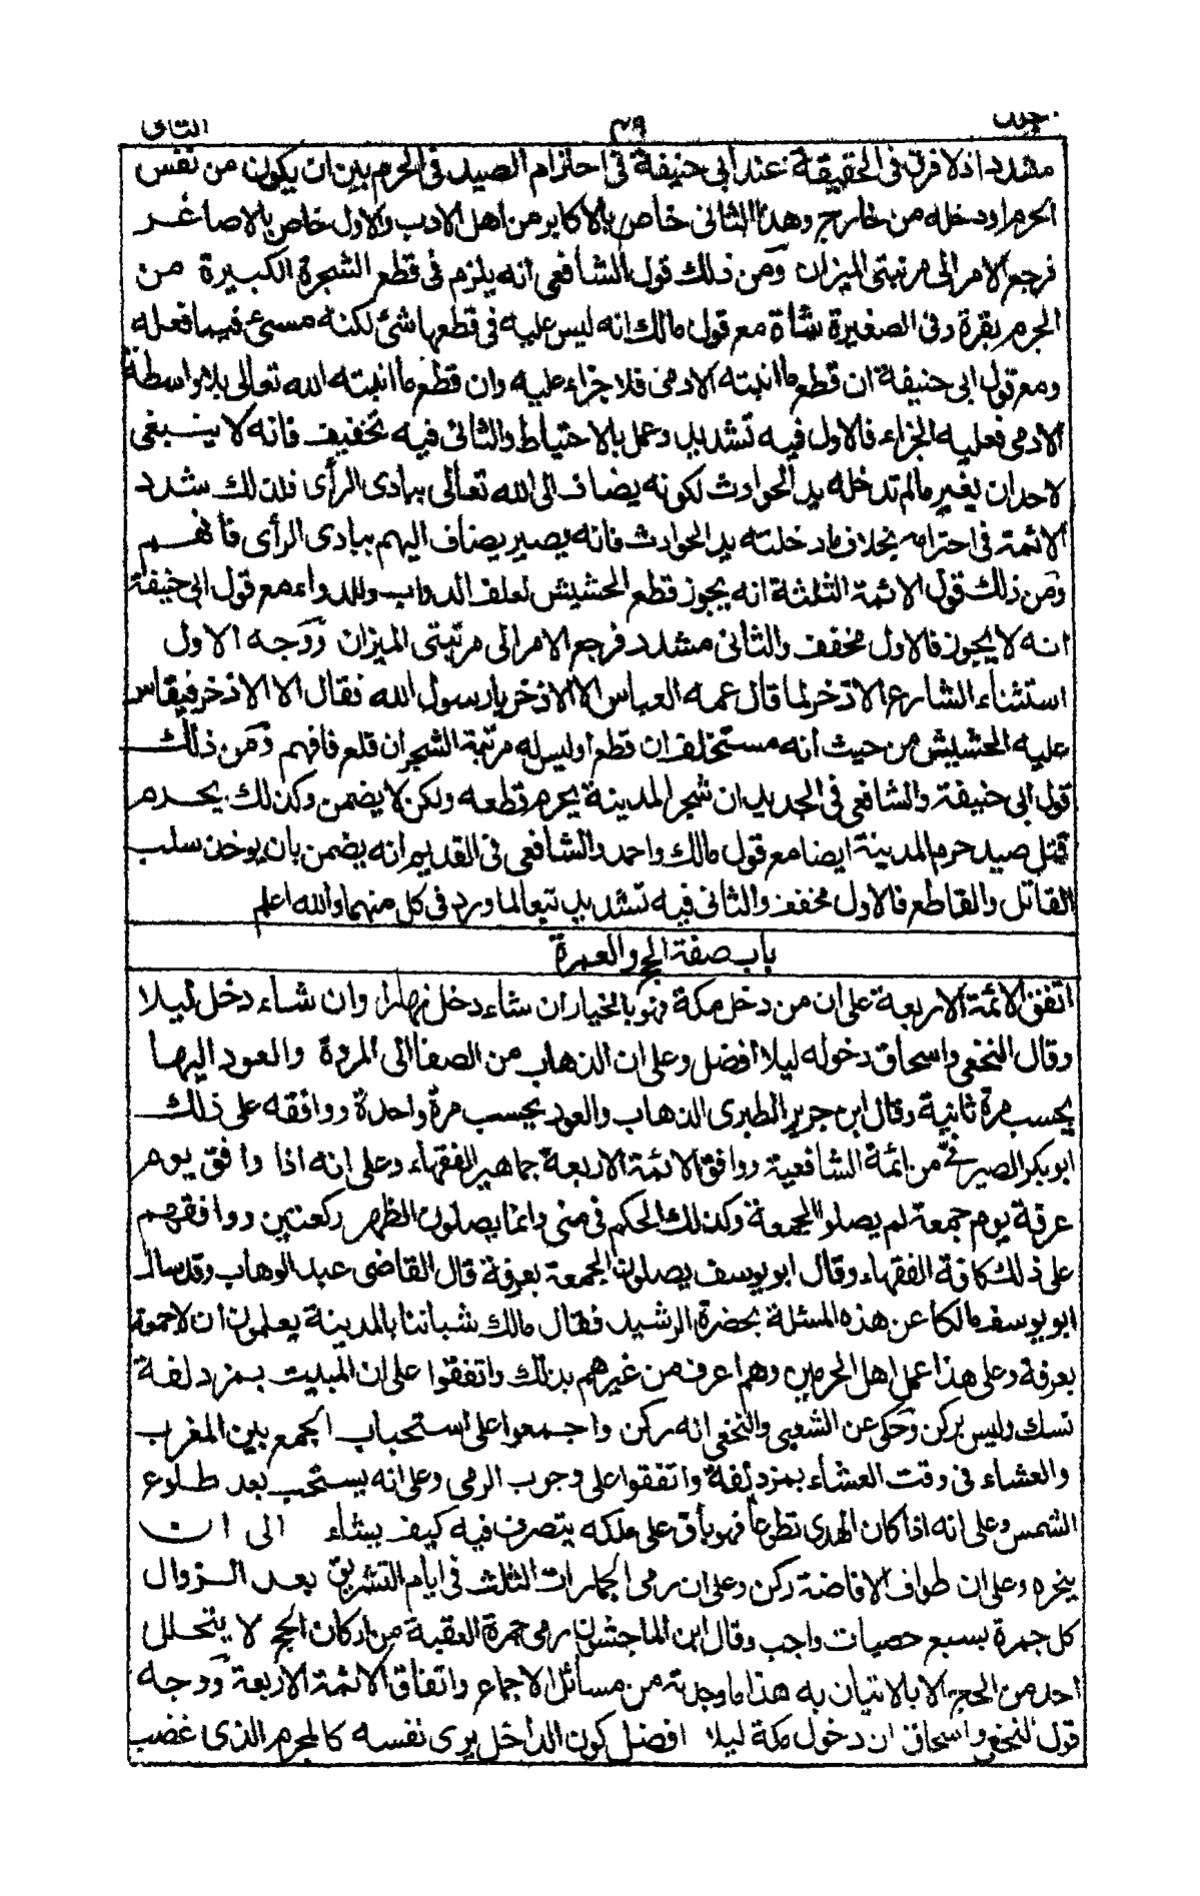 جلد ٤٩ الثانى
مشدد اذ لا فرق فى الحقيقة عند ابى حنيفة فى احترام الصيد فى الحرم بين ان يكون من نفس
الحرم او دخله من خارج وهذا الثانى خاص بالاكابر من اهل الادب والاول خاص بالاصاغر
فرجع الامر الى مرتبتى الميزان ومن ذلك قول الشافعى انه يلزم فى قطع الشجرة الكبيرة من
الحرم بقرة وفى الصغيرة شاة مع قول مالك انه ليس عليه فى قطعها شئ لكنه مسئ فيما فعله
ومع قول ابى حنيفة ان قطع ما انبته الادمى فلا جزاء عليه وان قطع ما انبته الله تعالى بلا واسطة
الادمى فعليه الجزاء فالاول فيه تشديد وعمل بالاحتياط والثانى فيه تخفيف فانه لا ينبغى
لاحد ان يغير ما لم تدخله يد الحوادث لكونه يضاف الى الله تعالى ببادى الرأى فلذلك شدد
الائمة فى احترامه بخلاف ما دخلته يد الحوادث فانه يصير يضاف اليهم ببادى الرأى فافهم
ومن ذلك قول الائمة الثلثة انه يجوز قطع الحشيش لعلف الدواب وللدواء مع قول ابى حنيفة
انه لا يجوز فالاول مخفف والثانى مشدد فرجع الامر الى مرتبتى الميزان ووجه الاول
استثناء الشارع الاذخر لما قال عمه العباس الا الاذخر يا رسول الله فقال الا الاذخر فيقاس
عليه الحشيش من حيث انه مستخلف ان قطع او ليس له مرتبة الشجر ان قلع فافهم ومن ذلك
قول ابى حنيفة والشافعى فى الجديد ان شجر المدينة يحرم قطعه ولكن لا يضمن وكذلك يحرم
قتل صيد حرم المدينة ايضا مع قول مالك واحمد والشافعى فى القديم انه يضمن بان يوخذ سلب
القاتل والقاطع فالاول مخفف والثانى فيه تشديد تبعا لما ورد فى كل منهما والله اعلم
باب صفة الحج والعمرة
اتفق الائمة الاربعة على ان من دخل مكة فهو بالخيار ان شاء دخل نهارا وان شاء دخل ليلا
وقال النخعى واسحاق دخوله ليلا افضل وعلى ان الذهاب من الصفا الى المروة والعود اليها
يحسب مرة ثانية وقال ابن جرير الطبرى الذهاب والعود يحسب مرة واحدة ووافقه على ذلك
ابو بكر الصيرفى من ائمة الشافعية ووافق الائمة الاربعة جماهير الفقهاء وعلى انه اذا وافق يوم
عرفة يوم جمعة لم يصلوا الجمعة وكذلك الحكم فى منى وانما يصلون الظهر ركعتين ووافقهم
على ذلك كافة الفقهاء وقال ابو يوسف يصلون الجمعة بعرفة قال القاضى عبد الوهاب وقد سال
ابو يوسف مالكا عن هذه المسئلة بحضرة الرشيد فقال مالك شباننا بالمدينة يعلمون ان لا جمعة
بعرفة وعلى هذا عمل اهل الحرمين وهم اعرف من غيرهم بذلك واتفقوا على ان المبيت بمزدلفة
نسك وليس بركن وحكى عن الشعبى والنخعى انه ركن واجمعوا على استحباب الجمع بين المغرب
والعشاء فى وقت العشاء بمزدلفة واتفقوا على وجوب الرمى وعلى انه يستحب بعد طلوع
الشمس وعلى انه اذا كان الهدى تطوعا فهو باق على ملكه يتصرف فيه كيف يشاء الى ان
ينحره وعلى ان طواف الافاضة ركن وعلى ان رمى الجمارات الثلث فى ايام التشريق بعد الزوال
كل جمرة بسبع حصيات واجب وقال ابن الماجشون رمى جمرة العقبة من اركان الحج لا يتحلل
احد من الحج الا بالاتيان به هذا ما وجدته من مسائل الاجماع واتفاق الائمة الاربعة ووجه
قول النخعى واسحاق ان دخول مكة ليلا افضل كون الداخل يرى نفسه كالمجرم الذى غضب